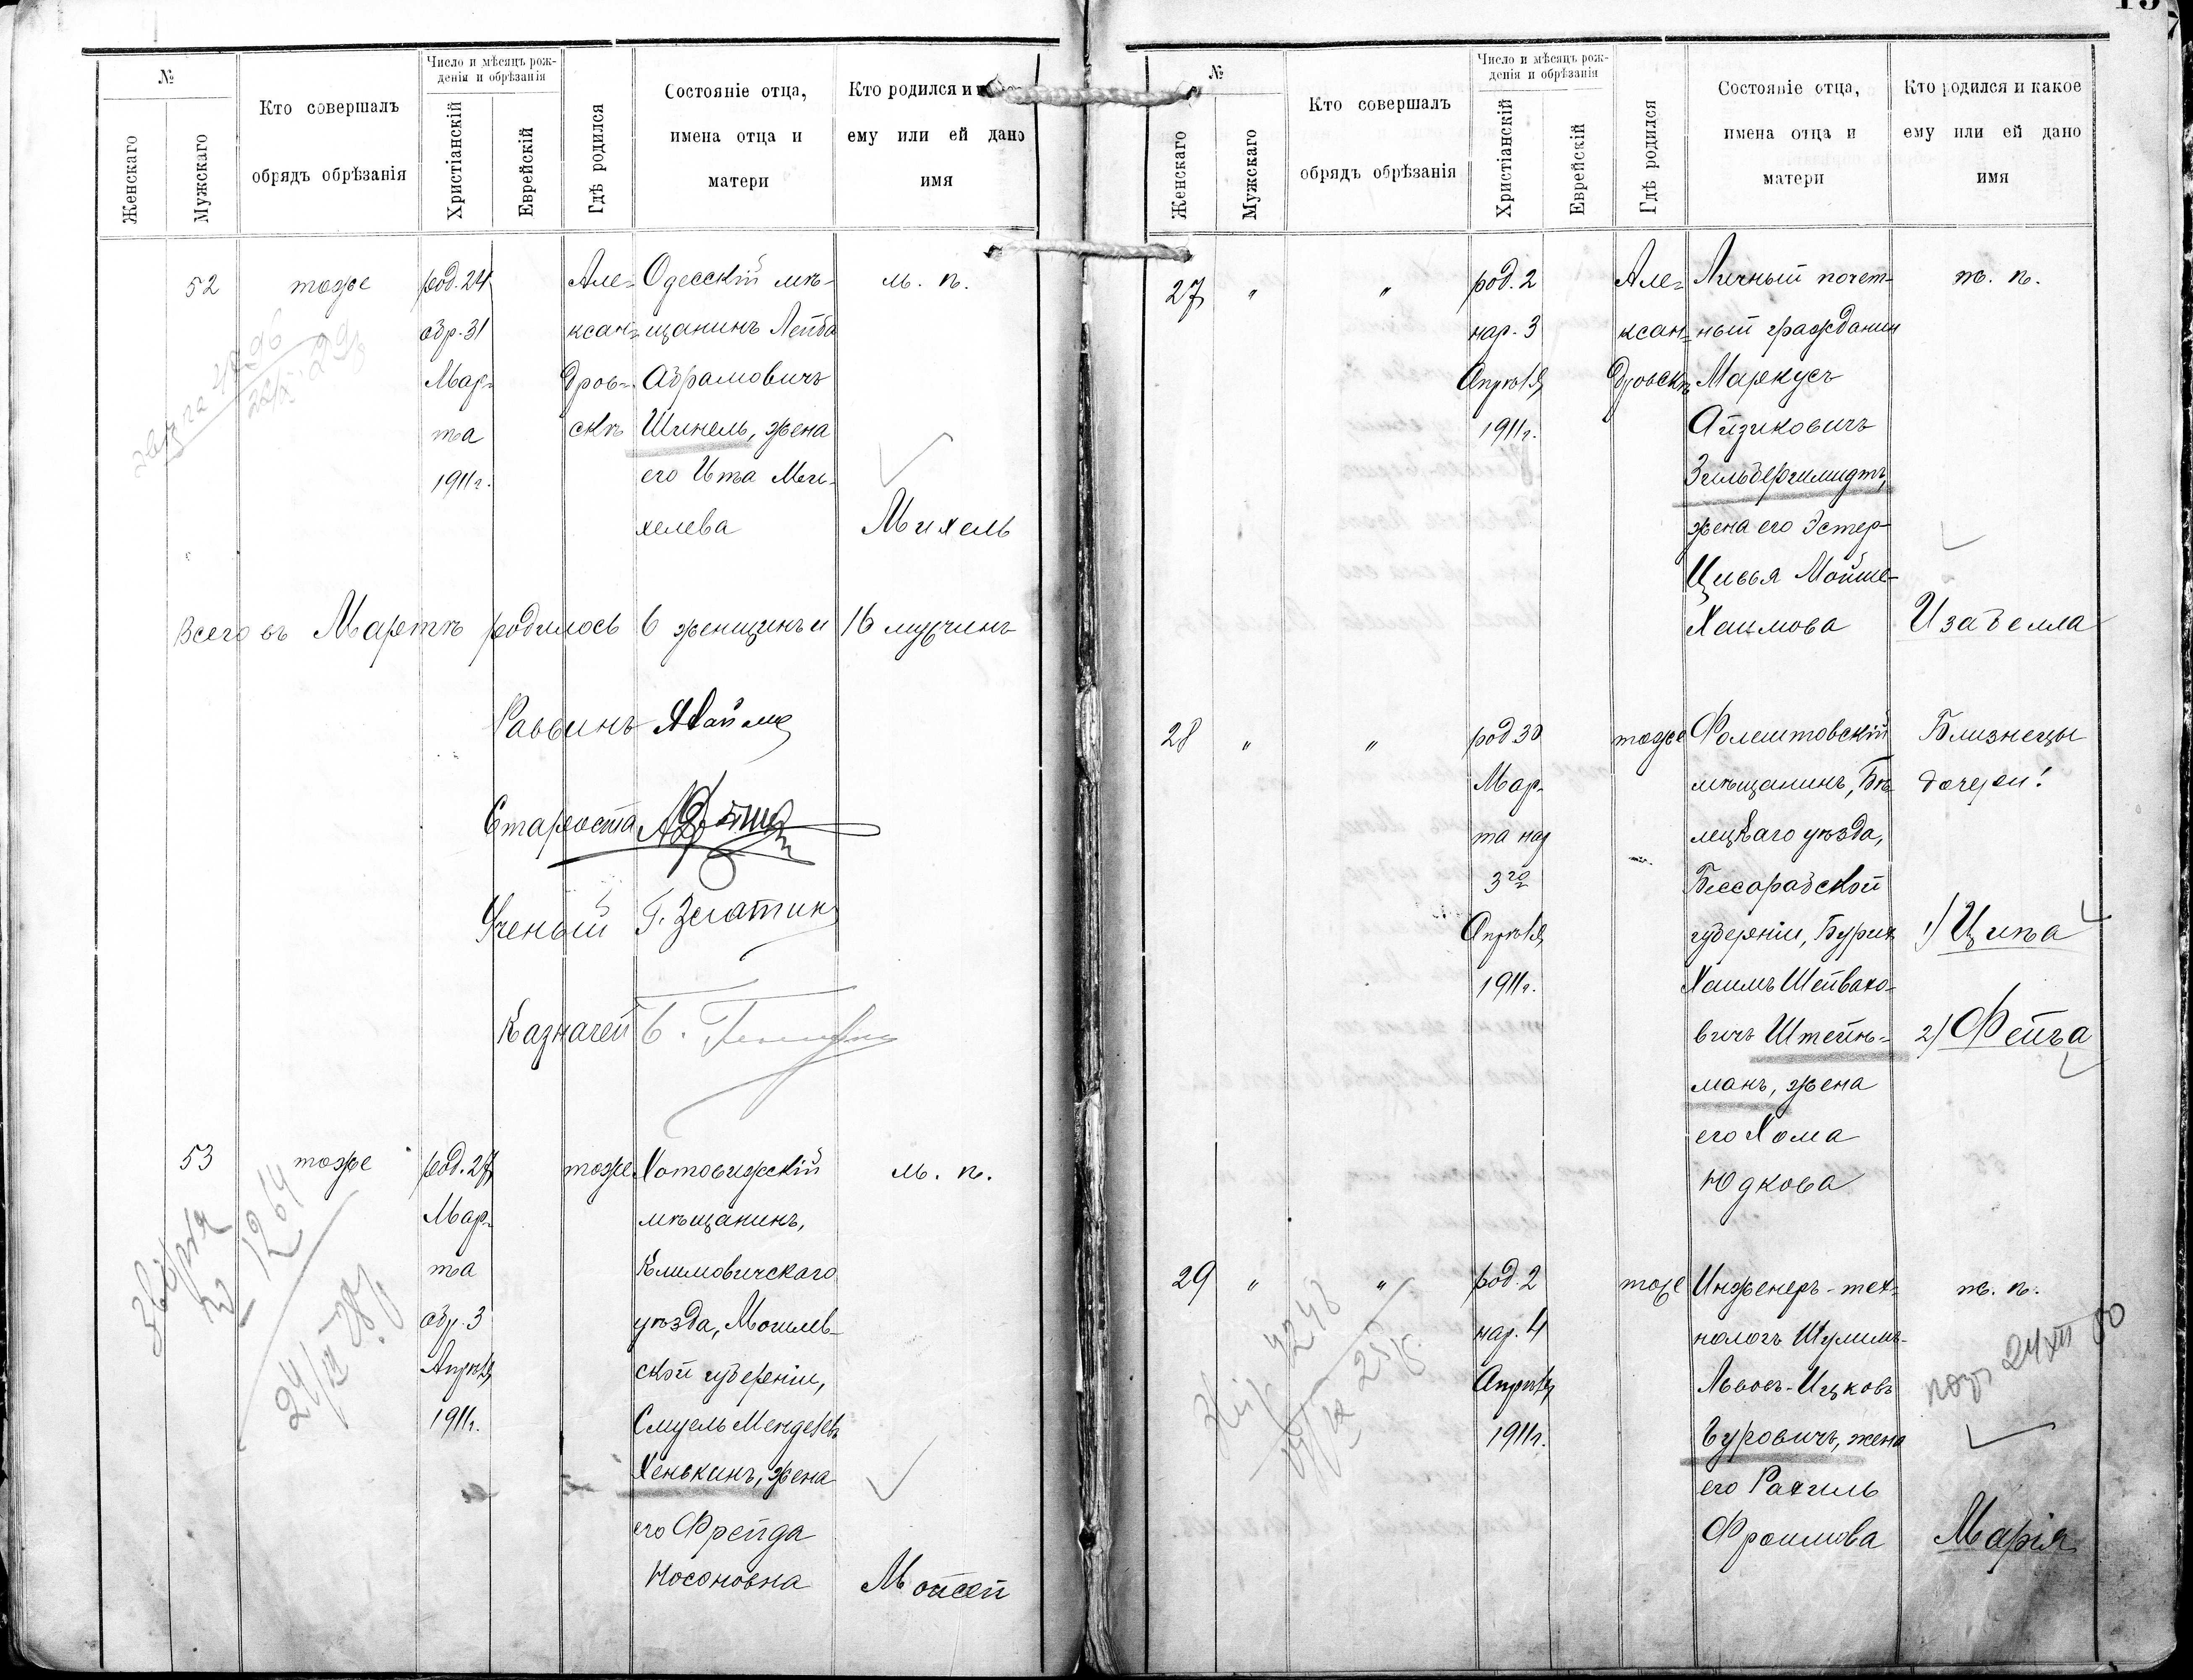 №
Женскаго
Мужскаго
Кто совершалъ
обрядъ обрѣзанія
Число и мѣсяцъ рож-
денія и обрѣзанія
Христіанскій
Еврейскій
Гдѣ родился
Состояніе отца,
имена отца и
матери
Кто родился и
ему или ей дано
имя
52
тоже
род. 24
обр. 31
Мар-
та
1911 г.
Але-
ксан-
дров-
скъ
Одесскій мѣ-
щанинъ Лейба
Абрамовичъ
Шинель, жена
его Ита Ме-
хелева
м. п.
Михель
Всего въ Мартѣ родилось 6 женщинъ и 16 мужчинъ
Раввинъ
Староста
Ученый
Казначей
53
тоже
род. 27
Мар-
та
обр. 3
Апрѣля
1911 г.
тоже
Хотовижскій
мѣщанинъ,
Климовичскаго
уѣзда, Могилев-
ской губерніи,
Смуель Мендел
Хенькинъ, жена
его Фрейда
Носоновна
м. п.
Мойсей
1264
№
Женскаго
Мужскаго
Кто совершалъ
обрядъ обрѣзанія
Число и мѣсяцъ рож-
денія и обрѣзанія
Христіанскій
Еврейскій
Гдѣ родился
Состояніе отца,
имена отца и
матери
Кто родился и какое
ему или ей дано
имя
27 " "
род. 2
нар. 3
Апрѣля
1911 г.
Але-
ксан-
дровскъ
Личный почет-
ный гражданин
Маркусъ
Айзиковичъ
Зильбершмидтъ,
жена его Эстер-
Цивья Мойше-
Хаимова
ж. п.
Изабелла
28 " "
род 30
Мар-
та нар
3го
Апрѣля
1911 г.
тоже
Фолештовскій
мѣщанинъ, Бѣ-
лецкаго уѣзда,
Бессарабской
губерніи, Бурих
Хаимъ Шейвахо-
вичъ Штейн-
манъ, жена
его Хома
Юдкова
Близнецы
дочери!
1) Ципа
2) Фейга
29 " "
род. 2
нар. 4
Апрѣля
1911 г.
тоже
Инженеръ-тех-
нологъ Шулимъ-
Львовъ-Ицковъ
Гуровичъ, жена
его Рахиль
Фроимова
ж. п.
Марія
4248